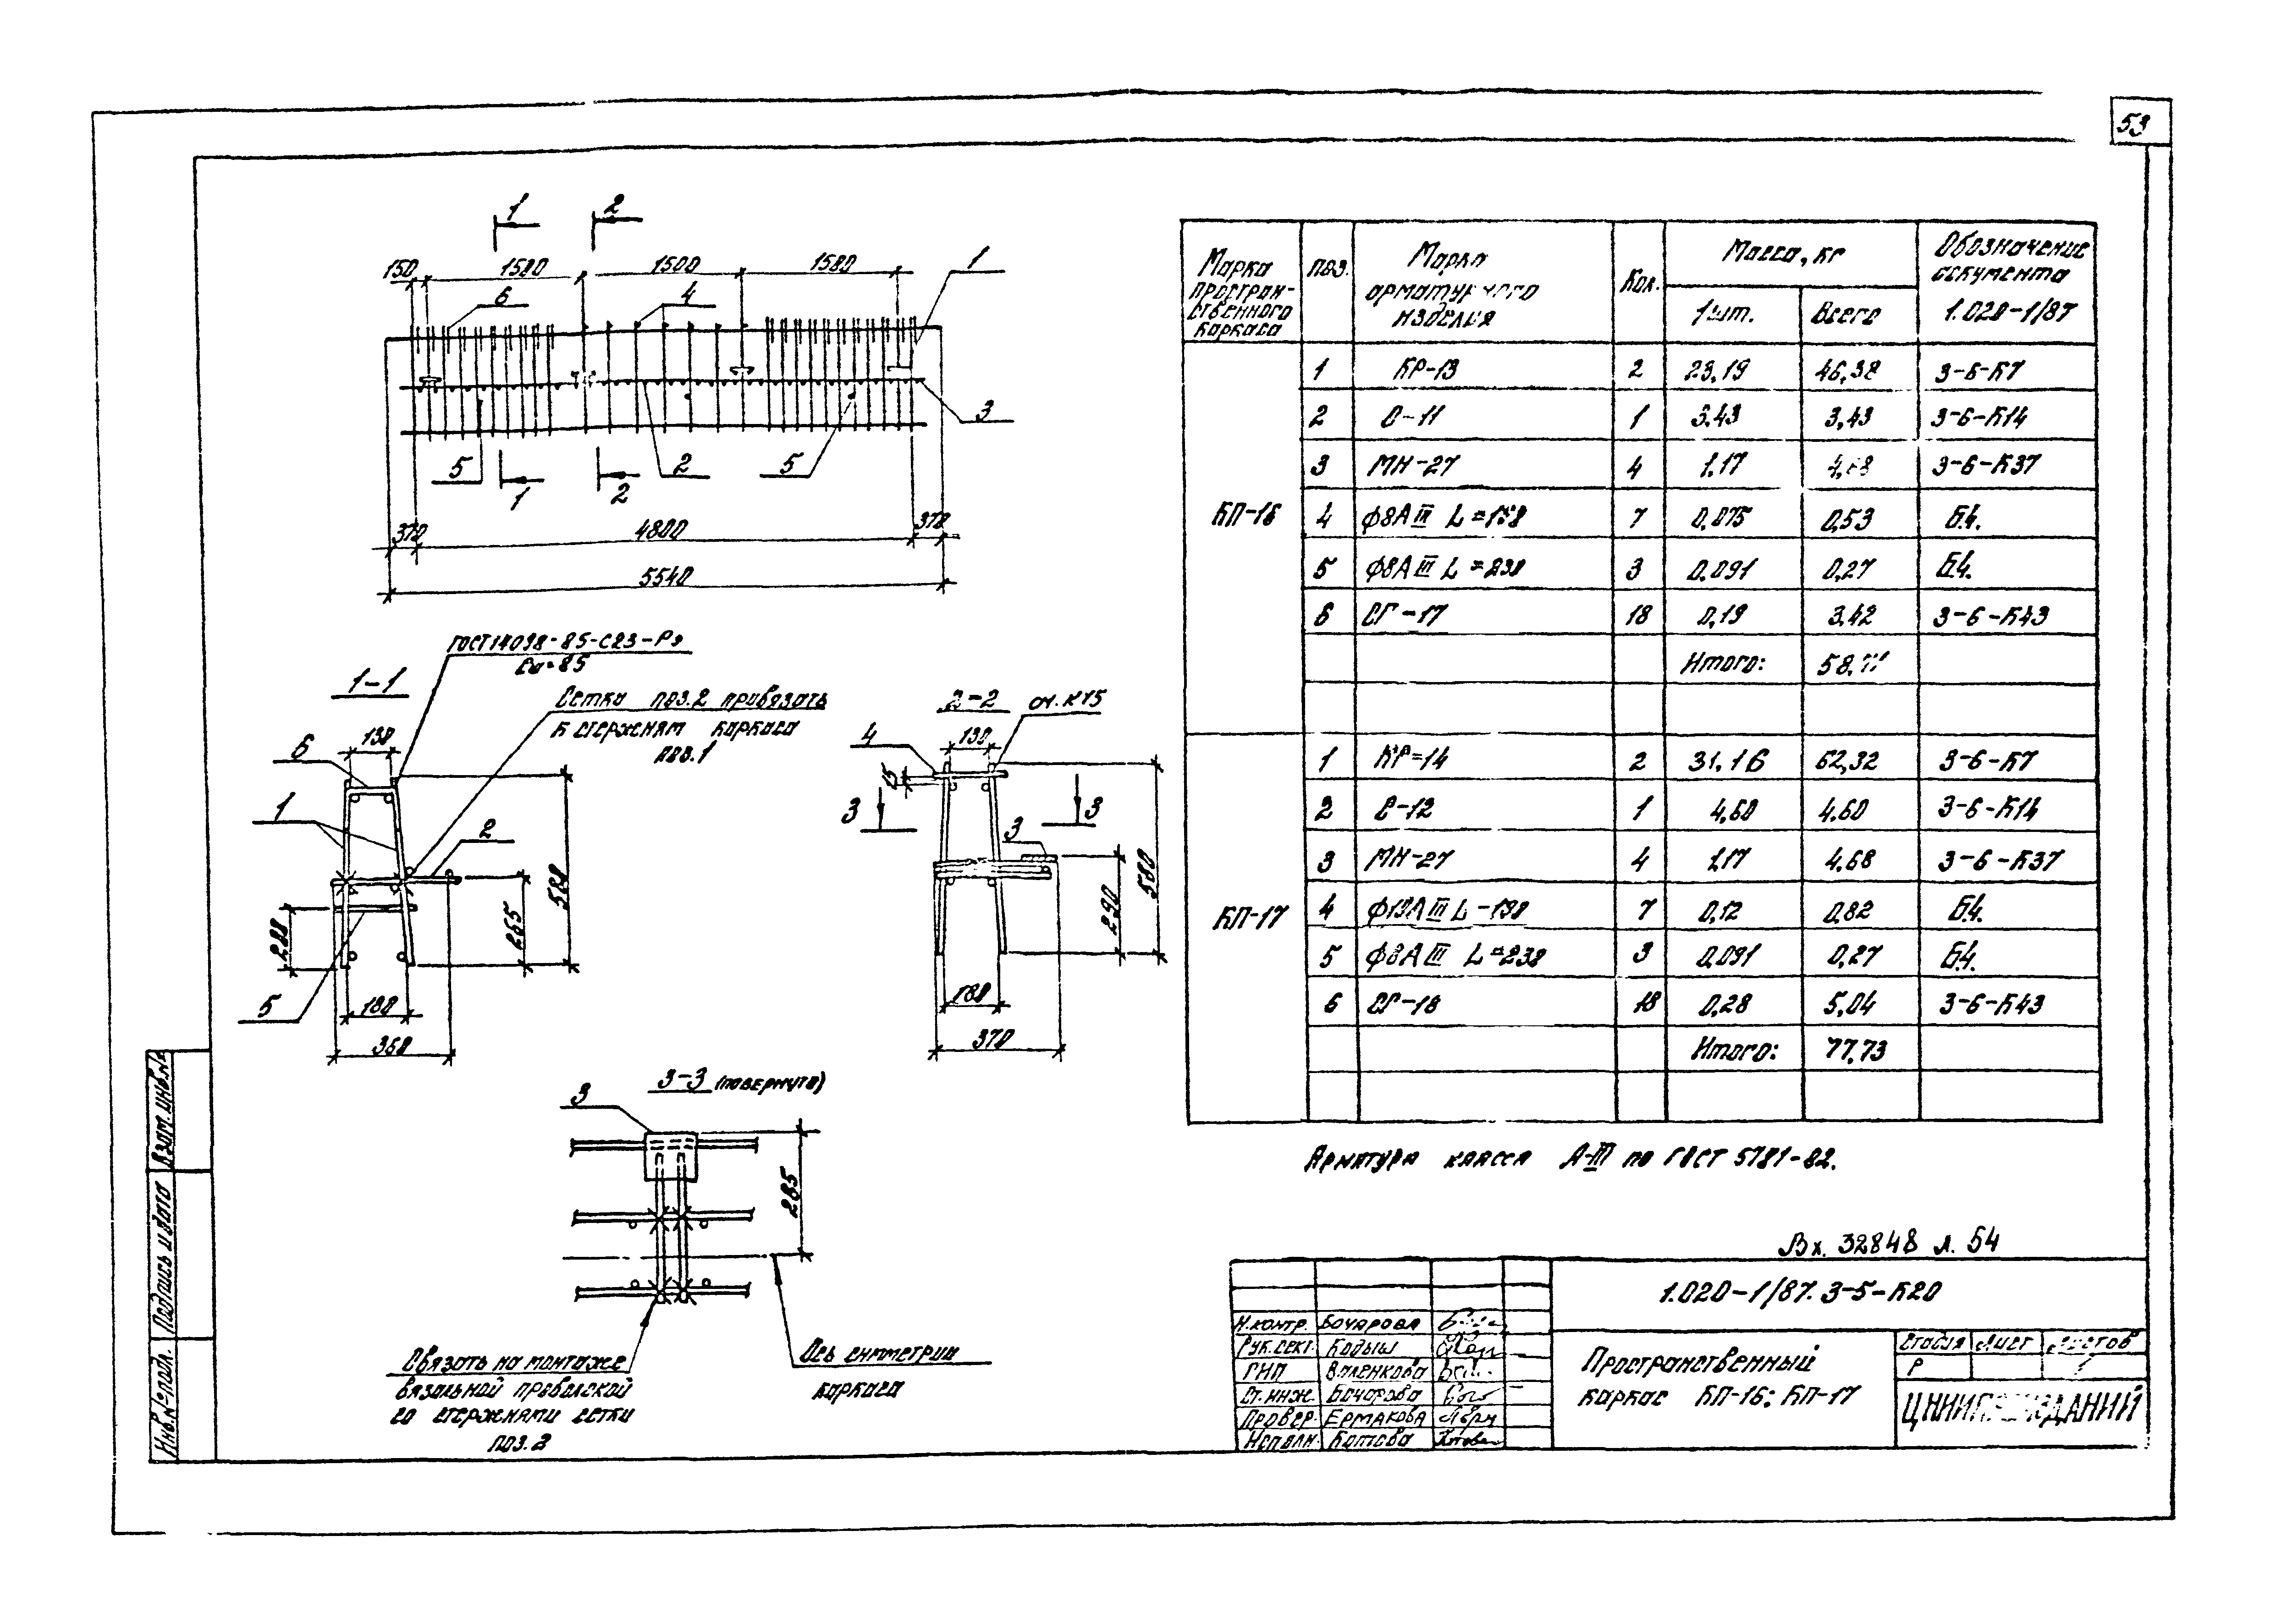 53
1 2
150 1500 1500 1580 1
6 4
3
5 1 2 2 5
370 4800 370
5540
ГОСТ 14098-85-С23-Рэ
1-1
Сетки поз.2 привязать
к стержням каркаса
поз.1
6 130
1 2
580
265
5 180
360
2-2 от. К15
4 130
15
3 3
3
290
580
180
370
3-3 (повернуто)
3
265
Связать на монтаже
вязальной проволокой
со стержнями сетки
поз. 2
Ось симметрии
каркаса
Марка пространственного каркаса | поз. | Марка арматурного изделия | Кол. | Масса, кг | Обозначение документа 1.020-1/87
1 шт. | Всего
КП-16
1 КР-13 2 23,19 46,38 3-6-К7
2 С-11 1 3.43 3,43 3-6-К14
3 МН-27 4 1,17 4,68 3-6-К37
4 ф8АIII 7 0,075 0,53 Б.ч.
5 ф8АIII L=230 3 0,091 0,27 Б.ч.
6 СГ-17 18 0,19 3,42 3-6-К43
Итого:
КП-17
1 КР-14 2 31.16 62,32 3-6-К7
2 С-12 1 4,60 4.60 3-6-К14
3 МН-27 4 1,17 4,68 3-6-К37
4 ф10АIII L=190 7 0,12 0,82 Б.ч.
5 ф8АIII L=230 3 0,091 0,27 Б.ч.
6 СГ-18 18 0,28 5,04 3-6-К43
Итого: 77,73
Арматура класса А-III по ГОСТ 5781-82.
Вх. 32848 л. 54
1.020-1/87. 3-5-К20
Н.контр. Бочарова
Рук.сект. Кодыш
ГИП Виленкова
Ст.инж. Бочарова
Провер. Ермакова
Исполн. Котова
Пространственный
каркас КП-16; КП-17
Стадия Лист Листов
Р 1
Взам. инв.№
Подпись и дата
Инв.№ подл.